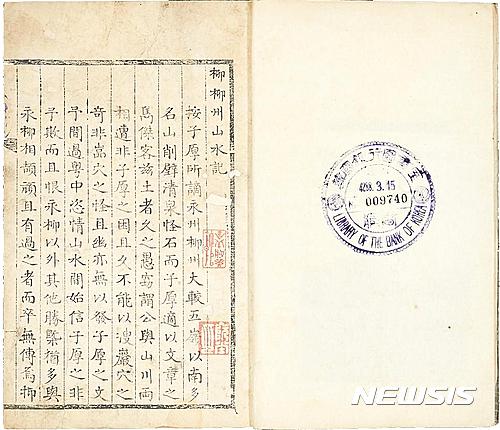 柳柳州山水記
按子厚所謫永州柳州大較五嶺以南多
名山削壁清泉怪石而子厚適以文章之
雋傑客玆土者久之愚竊謂公與山川兩
相遭非子厚之困且久不能以搜巖穴之
奇非巖穴之怪且幽亦無以發子厚之文
予間過粤中恣情山水間始信子厚之非
予欺而且恨永柳以外其他勝槩猶多與
永柳相頡頏且有過之者而卒無傳焉抑
3.15
009740
LIBRARY OF THE BANK OF KOREA
NEWSIS